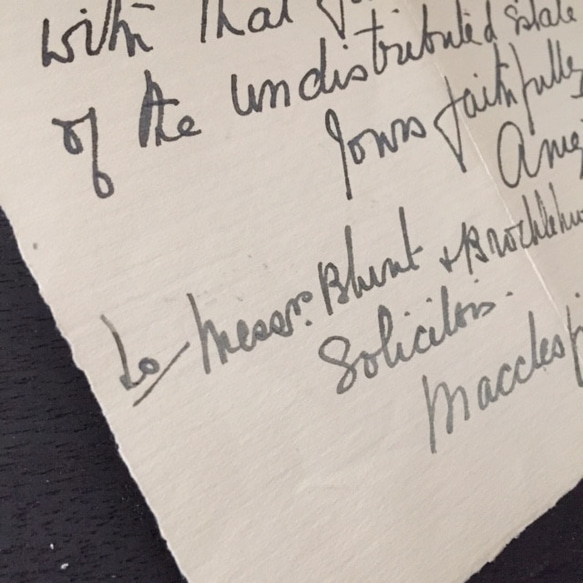 with that
of the undistributed Estate
Yours faithfully
To Messrs. Blunt & Brocklehu
Solicitors.
Macclesf